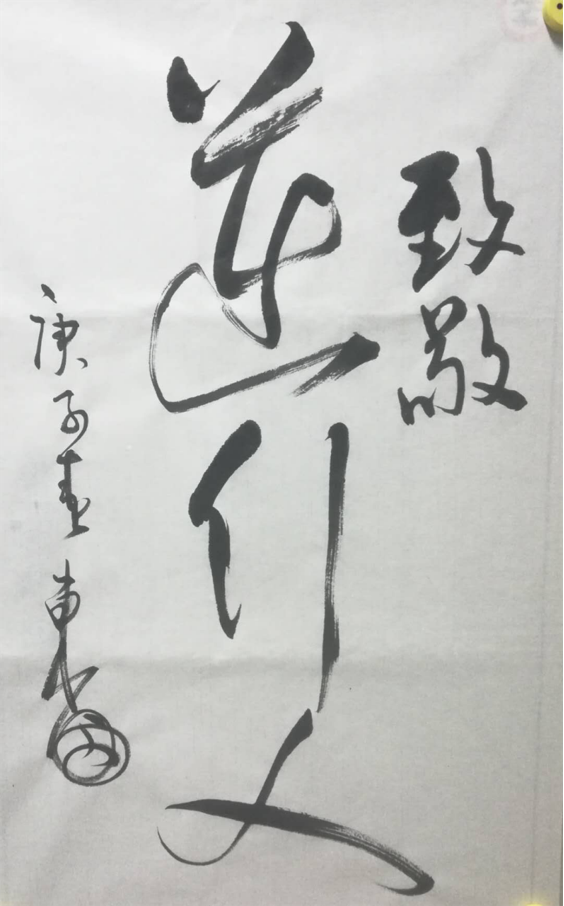 致敬
逆行人
庚子春